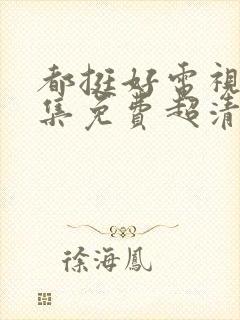 都挺好电視
集免費超清
徐海鳳